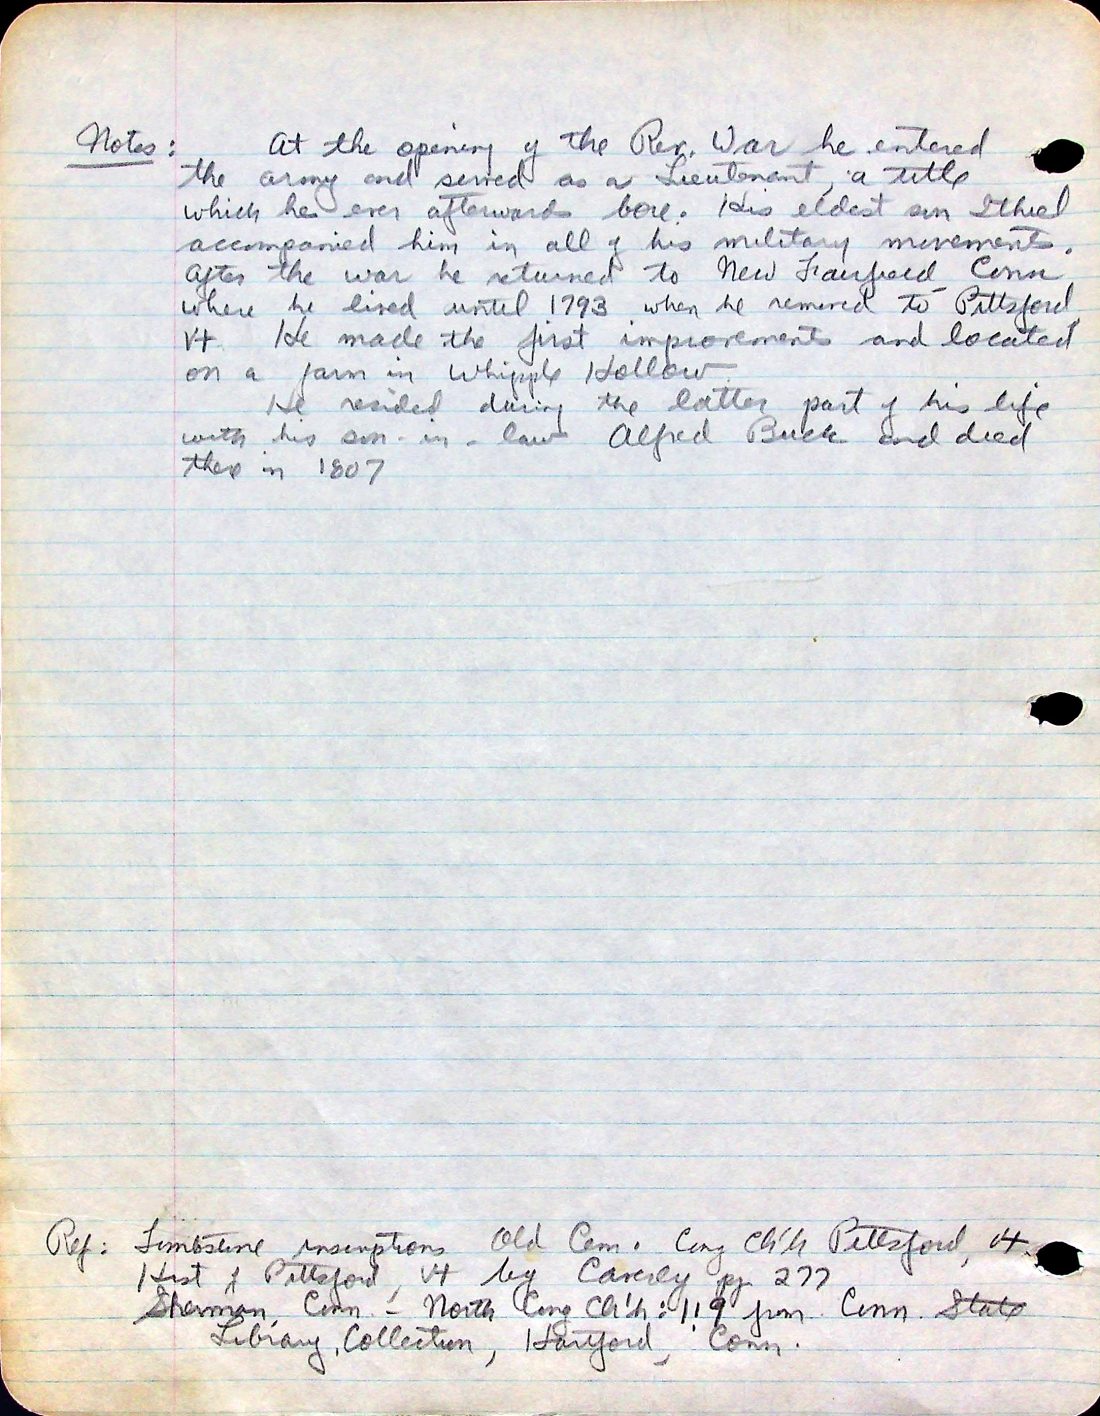 Notes: At the opening of the Rev. War he entered
the army and served as a Lieutenant, a title
which he ever afterwards bore. His eldest son Ithiel
accompanied him in all of his military movements.
After the war he returned to New Fairfield Conn
where he lived until 1793 when he removed to Pittsford
Vt. He made the first improvements and located
on a farm in Whipple Hollow
He resided during the latter part of his life
with his son-in-law Alfred Buck and died
there in 1807
Ref: Tombstone inscriptions Old Cem. Cong Ch'h Pittsford, Vt.
Hist of Pittsford, Vt by Caverly pg 277
Sherman, Conn. - North Cong Ch'h: 1:9 from Conn. State
Library, Collection, Hartford, Conn.